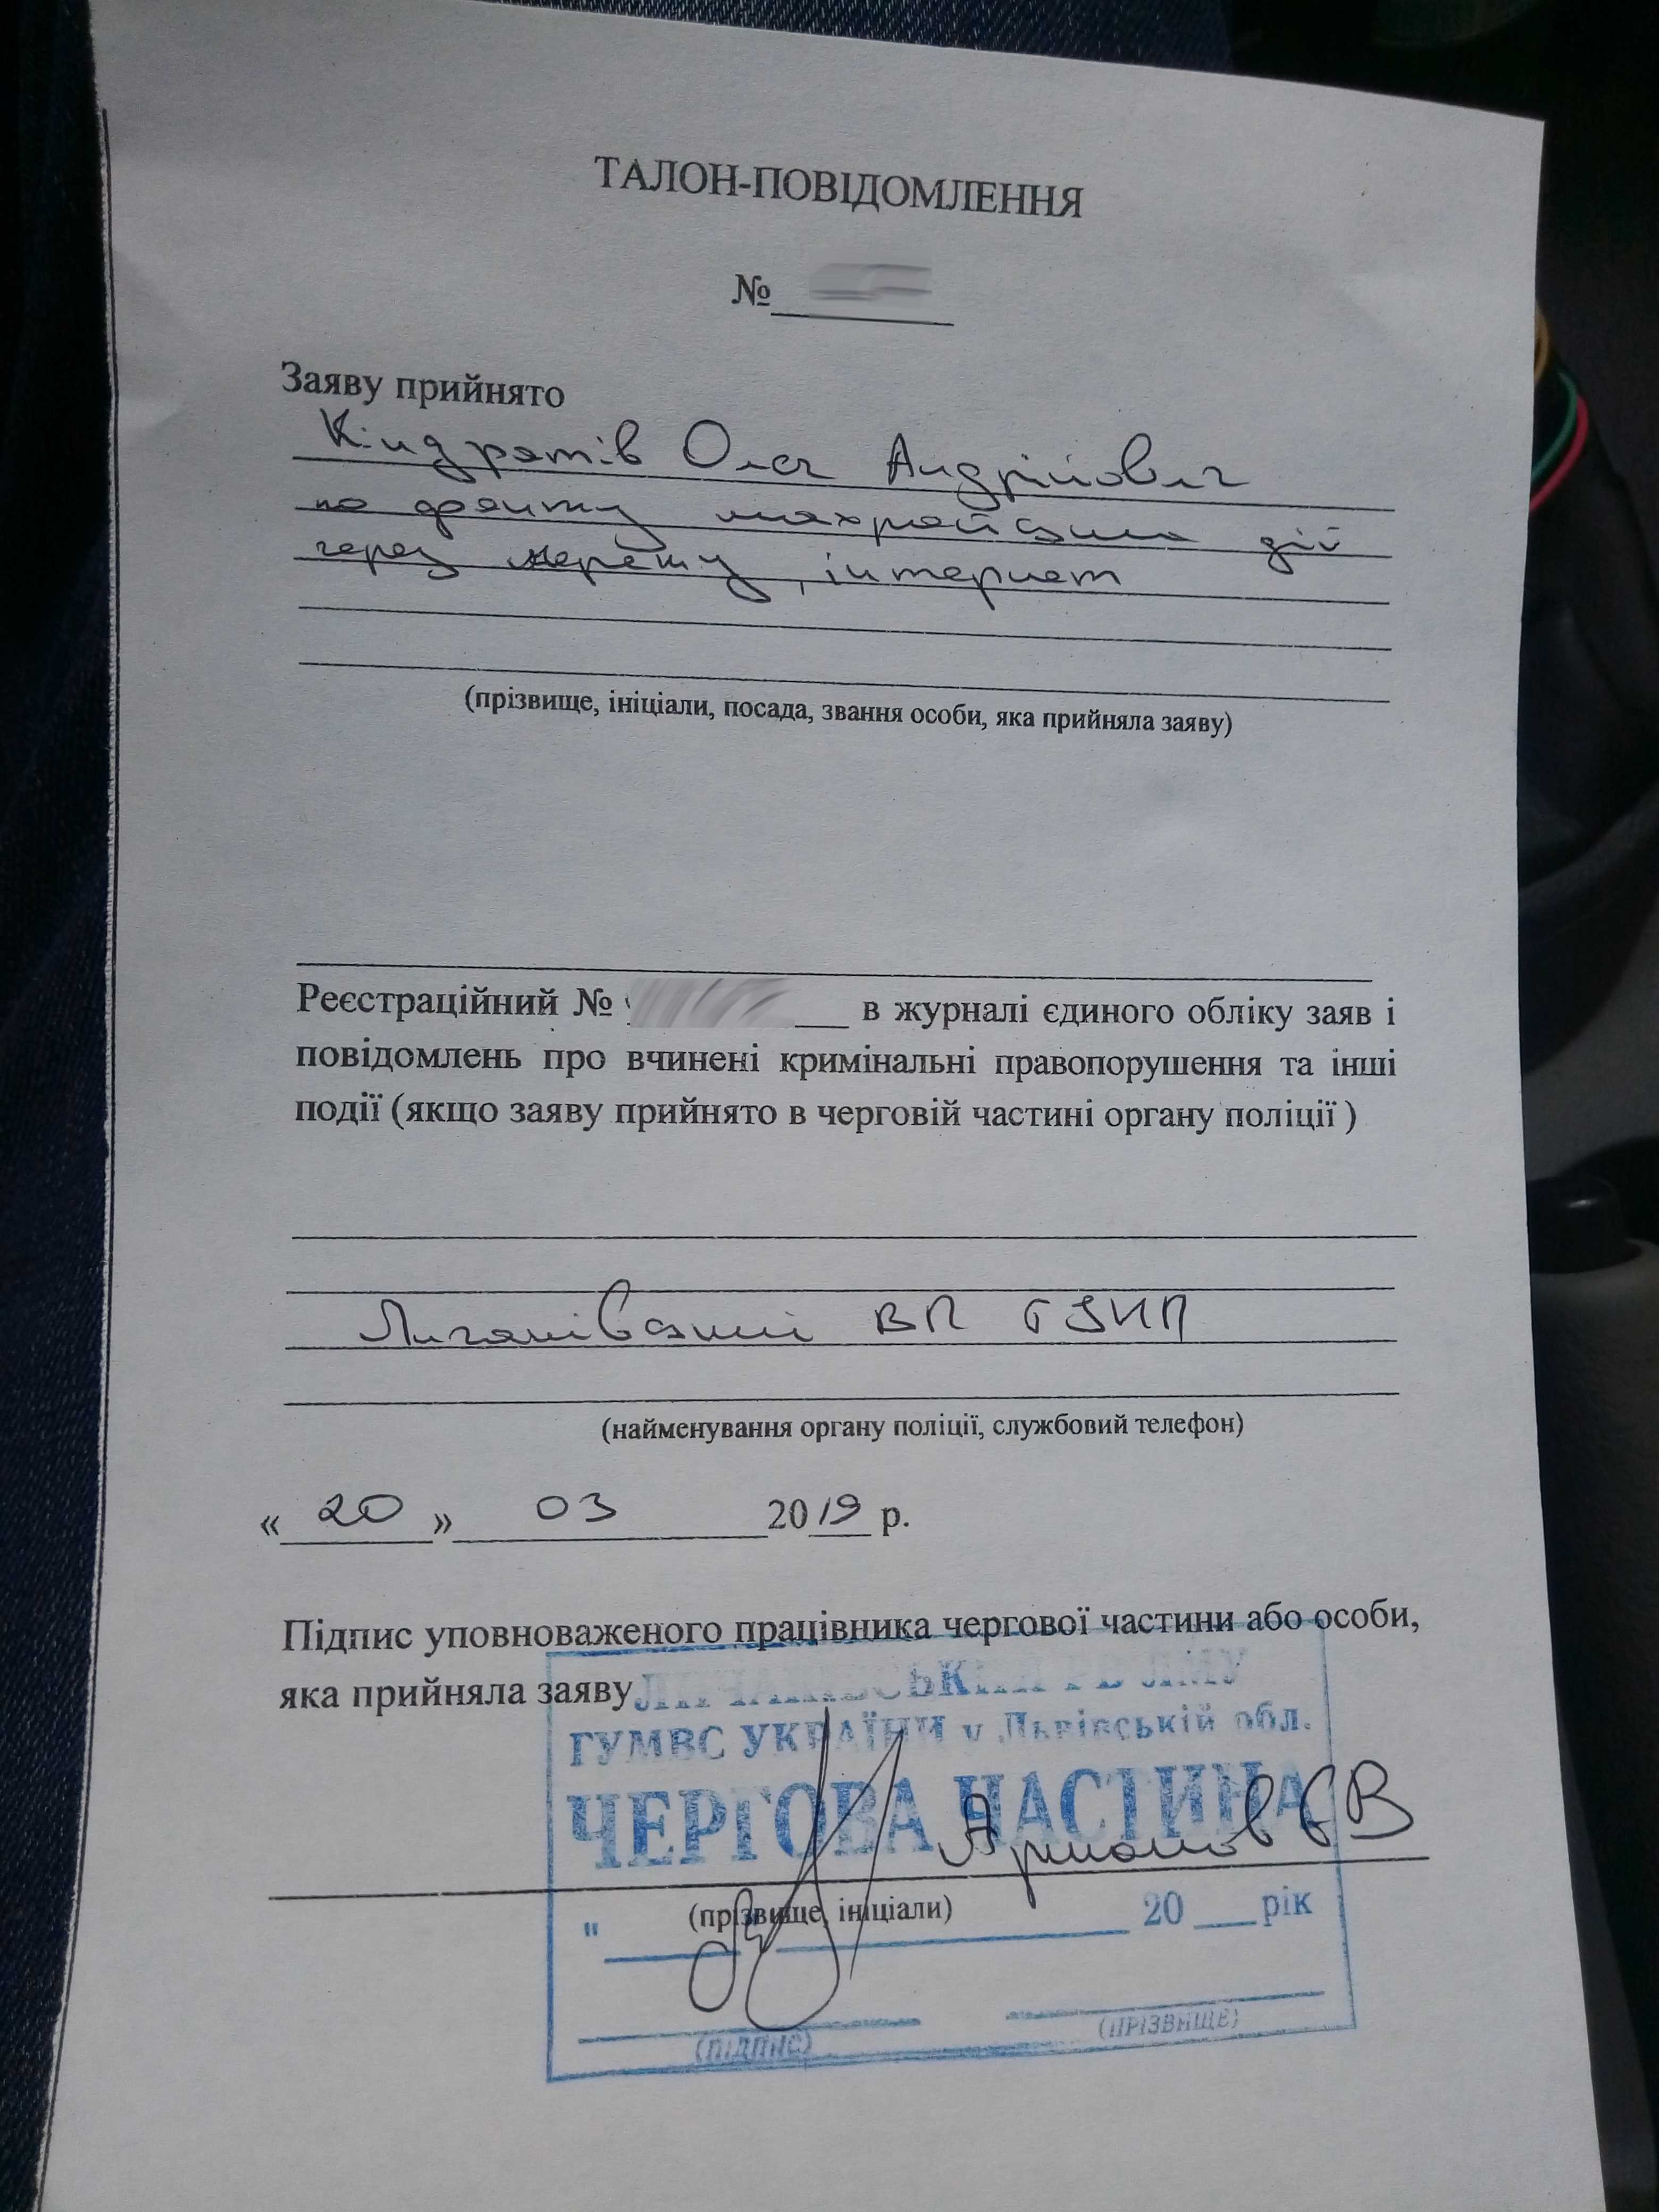 ТАЛОН-ПОВІДОМЛЕННЯ
№
Заяву прийнято
Кіндратів Олег Андрійович
по факту шахрайських дій
через мережу, інтернет
(прізвище, ініціали, посада, звання особи, яка прийняла заяву)
Реєстраційний № в журналі єдиного обліку заяв і
повідомлень про вчинені кримінальні правопорушення та інші
події (якщо заяву прийнято в черговій частині органу поліції )
Личаківський ВП ГУНП
(найменування органу поліції, службовий телефон)
« 20 » 03 2019 р.
Підпис уповноваженого працівника чергової частини або особи,
яка прийняла заяву
ЛИЧАКІВСЬКИЙ РВ ЛМУ
ГУМВС УКРАЇНИ у Львівській обл.
ЧЕРГОВА ЧАСТИНА
(прізвище, ініціали)
" " 20 рік
(ПІДПИС) (ПРІЗВИЩЕ)